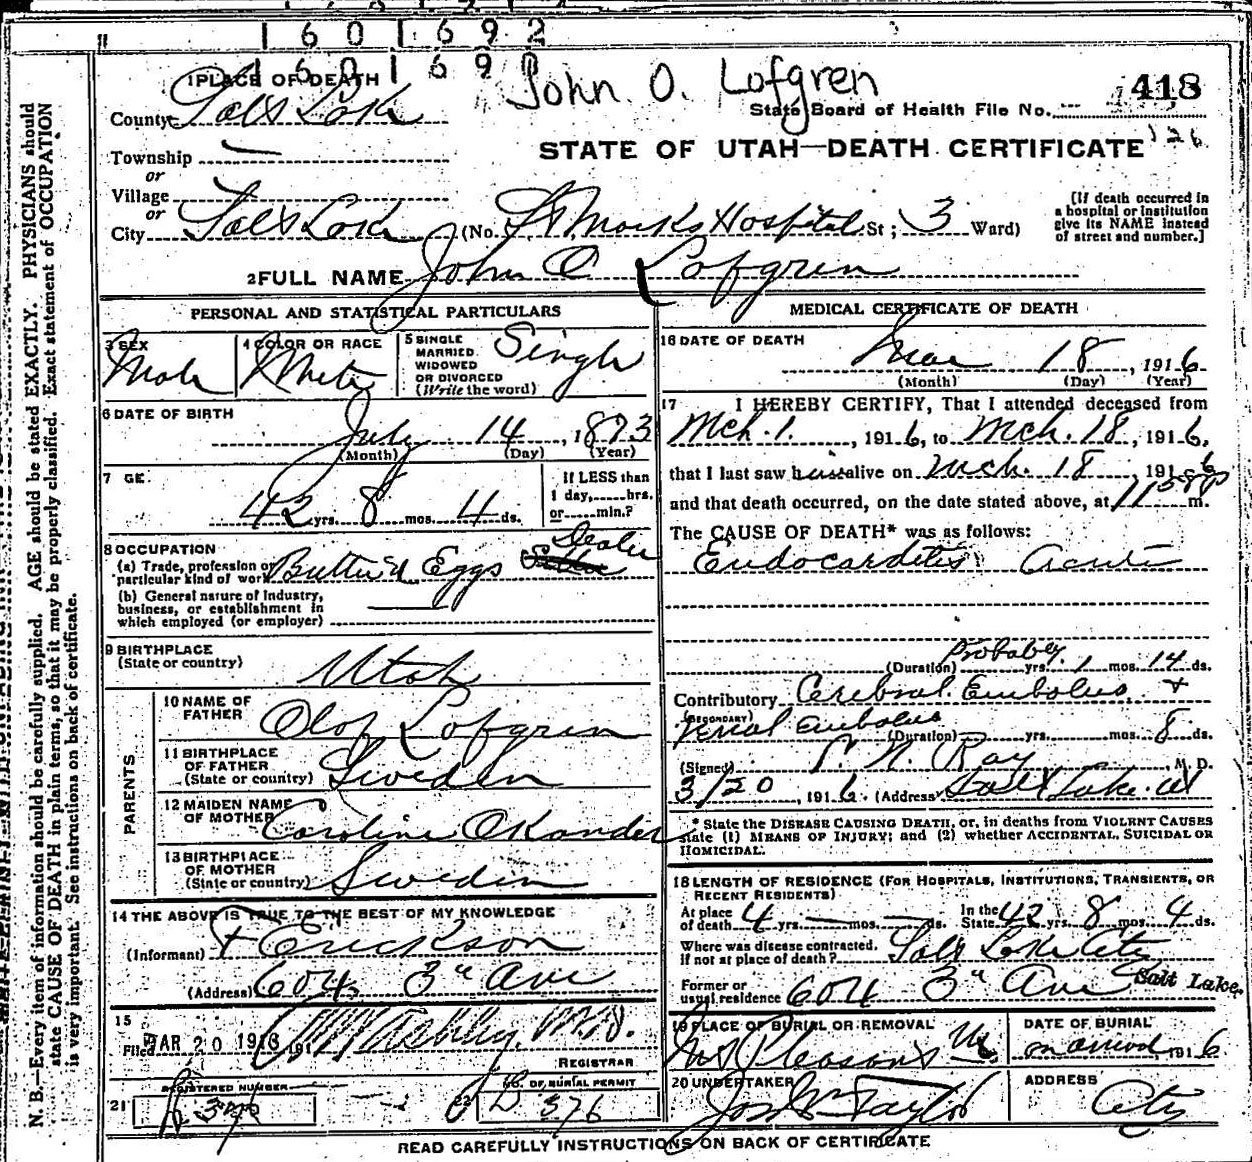 1601692
160169
John O. Lofgren
418
State Board of Health File No.
126
STATE OF UTAH—DEATH CERTIFICATE
1 PLACE OF DEATH
County Salt Lake
Township —
or
Village
or
City Salt Lake (No. St Marks Hospital St; 3 Ward)
[If death occurred in a hospital or institution give its NAME instead of street and number.]
2 FULL NAME John O Lofgren
PERSONAL AND STATISTICAL PARTICULARS
3 SEX
Male
4 COLOR OR RACE
White
5 SINGLE MARRIED WIDOWED OR DIVORCED (Write the word)
Single
6 DATE OF BIRTH
July 14, 1873
(Month) (Day) (Year)
7 GE.
42 yrs. 8 mos. 4 ds.
If LESS than 1 day, hrs. or min.?
8 OCCUPATION
(a) Trade, profession or particular kind of work Butter & Eggs Dealer
(b) General nature of Industry, business, or establishment in which employed (or employer)
9 BIRTHPLACE
(State or country)
Utah
PARENTS
10 NAME OF FATHER
Olof Lofgren
11 BIRTHPLACE OF FATHER (State or country)
Sweden
12 MAIDEN NAME OF MOTHER
Caroline OKander
13 BIRTHPLACE OF MOTHER (State or country)
Sweden
14 THE ABOVE IS TRUE TO THE BEST OF MY KNOWLEDGE
(Informant) Erickson
(Address) 604 3" Ave
15
Filed MAR 20 1916 191 Ashby, M.D.
REGISTRAR
REGISTERED NUMBER
NO. OF BURIAL PERMIT
21
B 376
MEDICAL CERTIFICATE OF DEATH
16 DATE OF DEATH
Mar 18, 1916
(Month) (Day) (Year)
17 I HEREBY CERTIFY, That I attended deceased from
Mch. 1, 1916, to Mch. 18, 1916,
that I last saw him alive on Mch. 18, 1916
and that death occurred, on the date stated above, at 11 58 P m.
The CAUSE OF DEATH* was as follows:
Endocarditis acute
(Duration) Probably yrs. 1 mos. 14 ds.
Contributory Cerebral Embolus +
(SECONDARY) Renal Embolus
(Duration) yrs. mos. 8 ds.
(Signed) Ray, M. D.
3/20, 1916. (Address) Salt Lake. Ut
* State the DISEASE CAUSING DEATH, or, in deaths from VIOLENT CAUSES state (1) MEANS OF INJURY; and (2) whether ACCIDENTAL, SUICIDAL OR HOMICIDAL.
18 LENGTH OF RESIDENCE (FOR HOSPITALS, INSTITUTIONS, TRANSIENTS, OR RECENT RESIDENTS)
At place of death 4 yrs. — mos. — ds. In the State 42 yrs. 8 mos. 4 ds.
Where was disease contracted, if not at place of death? Salt Lake City
Former or usual residence 604 3" Ave Salt Lake.
19 PLACE OF BURIAL OR REMOVAL
Mt Pleasant Ut
DATE OF BURIAL
on arrival 1916
20 UNDERTAKER
Jos Wm Taylor
ADDRESS
City
READ CAREFULLY INSTRUCTIONS ON BACK OF CERTIFICATE
N. B.—Every item of information should be carefully supplied. AGE should be stated EXACTLY. PHYSICIANS should
state CAUSE OF DEATH in plain terms, so that it may be properly classified. Exact statement of OCCUPATION
is very important. See instructions on back of certificate.